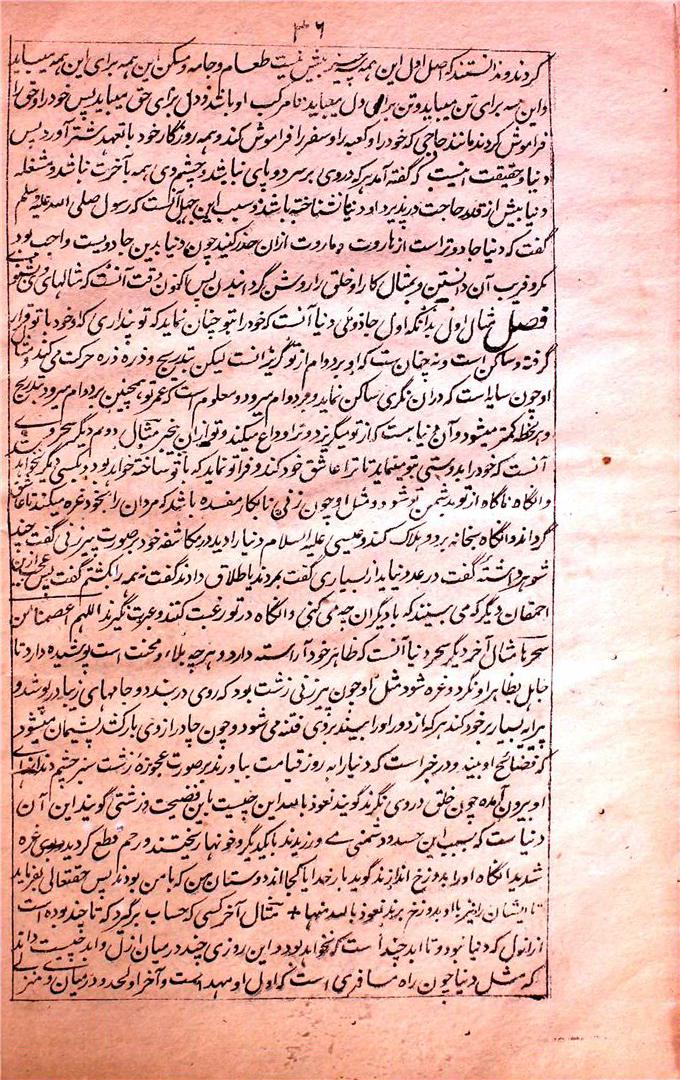 ۳۶
کردند و ندانستند که اصل اول این همه سه چیز بیش نیست طعام و جامه و مسکن این همه برای این همه میباید
و این سه برای تن میباید و تن برای دل میباید تا مرکب او باشد و دل برای حق میباید پس خود را و حق را
فراموش کردند مانند حاجی که خود را و کعبه را و سفر را فراموش کند و همه روزگار خود با تعهد شتر آورد پس
دنیا و حقیقت اینست که گفته آمد هر که در وی بر سر دو پای نباشد و چشم وی همه بآخرت نباشد و مشغله
دنیا بیش از قدر حاجت در پذیرد او دنیا نشناخته باشد و سبب این جهل آنست که رسول صلی الله علیه وسلم
گفت که دنیا جادوتر است از هاروت و ماروت از آن حذر کنید چون دنیا بدین جادویست واجب بود
مکر و فریب آن دانستن و بمثال کار او خلق را روشن گردانیدن پس اکنون وقت آنست که مثالهای وی بشنوی
فصل مثال اول بدانکه اول جادوئی دنیا آنست که خود را بتو چنان نماید که تو پنداری که او خود با تو قرار
گرفته و ساکن است و نه چنان ست که او بر دوام از تو گریزانست لیکن بتدریج و ذره ذره حرکت می کند و مثال
او چون سایه است که در آن نگری ساکن نماید و بر دوام میرود و معلوم است که عمر تو همچنین بر دوام میرود بتدریج
و هر لحظه کمتر میشود و آن دنیا ست که از تو میگریزد و ترا وداع میکند و تو از آن بیخبر مثال دوم دیگر سحر وی
آنست که خود را بدوستی بتو مینماید تا ترا عاشق خود کند و فرا تو نماید که با تو ساخته خواهد بود و بکسی دیگر نخواهد شد
و آنگاه ناگاه از تو بدشمن تو شود و مثل او چون زنی نابکار مفسده باشد که مردان را بخود غره میکند تا عاشق
گرداند و آنگاه بخانه برد و هلاک کند و عیسی علیه السلام دنیا را دید در مکاشفه خود بر صورت پیرزنی گفت چند
شوهر داشته گفت در عدد نیاید از بسیاری گفت بمردند یا طلاق دادند گفت نه همه را بکشتم گفت پس عجب ازین
احمقان دیگر که می بینند که با دیگران چه می کنی و آنگاه در تو رغبت کنند و عبرت نگیرند اللهم اعصمنا من
سحرها مثال آخر دیگر سحر دنیا آنست که ظاهر خود آراسته دارد و هر چه بلاء و محنت است پوشیده دارد تا
جاهل بظاهر او نگرد و غره شود مثل او چون پیرزنی زشت بود که روی در بندد و جامهای زیبا در پوشد و
پیرایه بسیار بر خود کند هر که از دور او را بیند بر وی فتنه می شود و چون چادر از وی بازکشد پشیمان میشود
که فضائح او بیند و در خبر است که دنیا را به روز قیامت بیاورند بر صورت عجوزه زشت سبز چشم دندانهای
او بیرون آمده چون خلق در وی نگرند گویند نعوذ بالله این چیست باین فضیحت و زشتی گویند این آن
دنیا ست که بسبب این حسد و دشمنی می ورزیدند با یکدیگر و خونها ریختند و رحم قطع کردید و بوی غره
شدید آنگاه او را بدوزخ اندازند گوید بار خدایا کجااند دوستان من که با من بودند پس حقتعالی بفرماید
تا ایشان را نیز با او بدوزخ برند نعوذ بالله منها + مثال آخر کسی که حساب برگیرد که تا چند بوده است
از ازل که دنیا نبود و تا ابد چند است که نخواهد بود و این روزی چند در میان ازل و ابد چیست داند
که مثل دنیا چون راه مسافری است که اول او مهد است و آخر او لحد و در میان وی منزلی